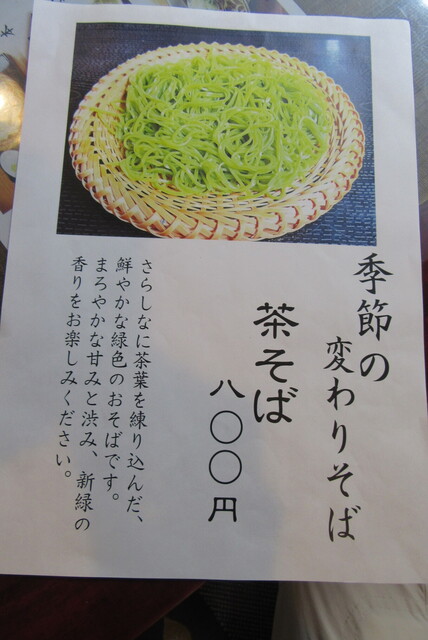 季節の
変わりそば
茶そば
八〇〇円
さらしなに茶葉を練り込んだ、
鮮やかな緑色のおそばです。
まろやかな甘みと渋み、新緑の
香りをお楽しみください。